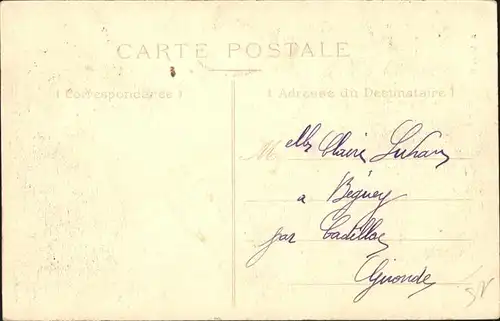 CARTE POSTALE
( Correspondance )
( Adresse du Destinataire )
Melle Claire
à
Béguey
par Cadillac
Gironde